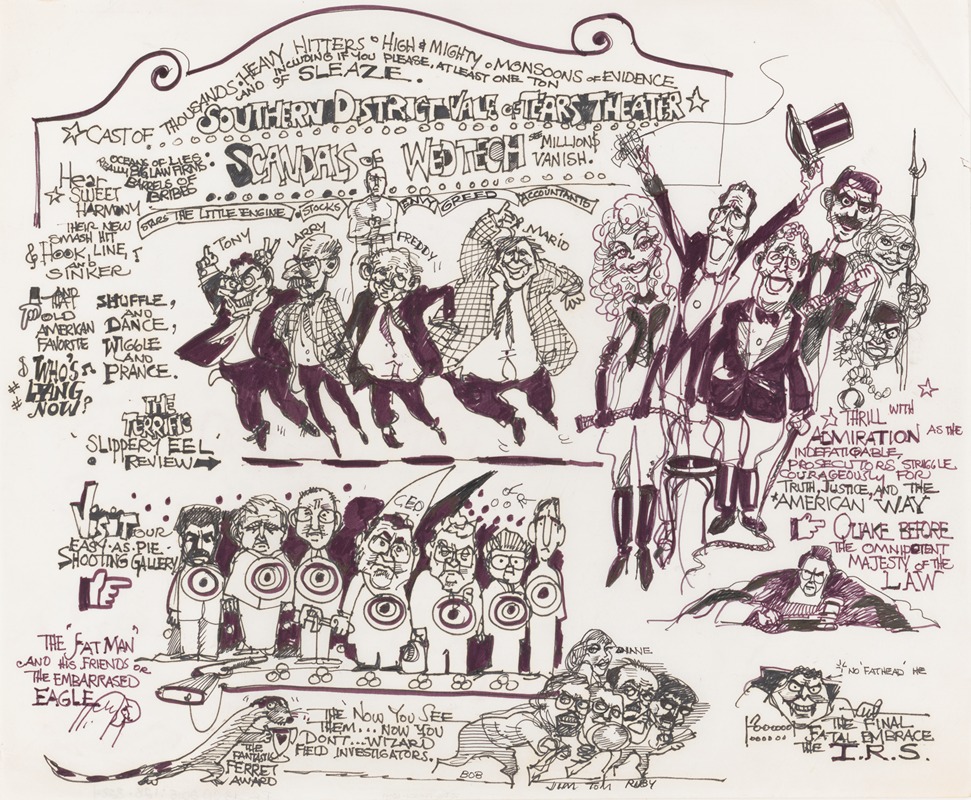 ☆CAST OF THOUSANDS · HEAVY HITTERS · HIGH & MIGHTY · MONSOONS OF EVIDENCE
INCLUDING IF YOU PLEASE, AT LEAST ONE TON
AND OF SLEAZE.
SOUTHERN DISTRICT VALE OF TEARS THEATER ☆
SCANDALS OF WEDTECH
SEE MILLION$
VANISH.
OCEANS OF LIES
BIG LAW FIRMS
BARRELS OF
BRIBES
Hear
SWEET
HARMONY
THEIR NEW
SMASH HIT
HOOK, LINE,
AND
SINKER
STARS THE LITTLE ENGINE
STOCKS
ENVY
GREED
ACCOUNTANTS
TONY
LARRY
FREDDY
MARIO
AND
THAT
OLD
AMERICAN
FAVORITE
$ WHO'S
LYING
NOW?
SHUFFLE,
AND
DANCE,
WIGGLE
AND
PRANCE.
THE
TERRIFIC
'SLIPPERY EEL'
REVIEW
VISIT OUR
EASY-AS-PIE-
SHOOTING GALLERY
CEO
THE "FAT MAN"
AND HIS FRIENDS OR
THE EMBARRASED
EAGLE
THE
FANTASTIC
FERRET
AWARD
THE 'NOW YOU SEE
THEM... NOW YOU
DON'T... WIZARD
FIELD INVESTIGATORS.
BOB
JIM
TOM
RUBY
☆ THRILL WITH
ADMIRATION AS THE
INDEFATIGABLE,
PROSECUTORS STRUGGLE
COURAGEOUSLY FOR
TRUTH, JUSTICE, AND THE
AMERICAN WAY
QUAKE BEFORE
THE OMNIPOTENT
MAJESTY OF THE
LAW
NO 'FATHEAD' HE
THE FINAL
FATAL EMBRACE
THE I.R.S.